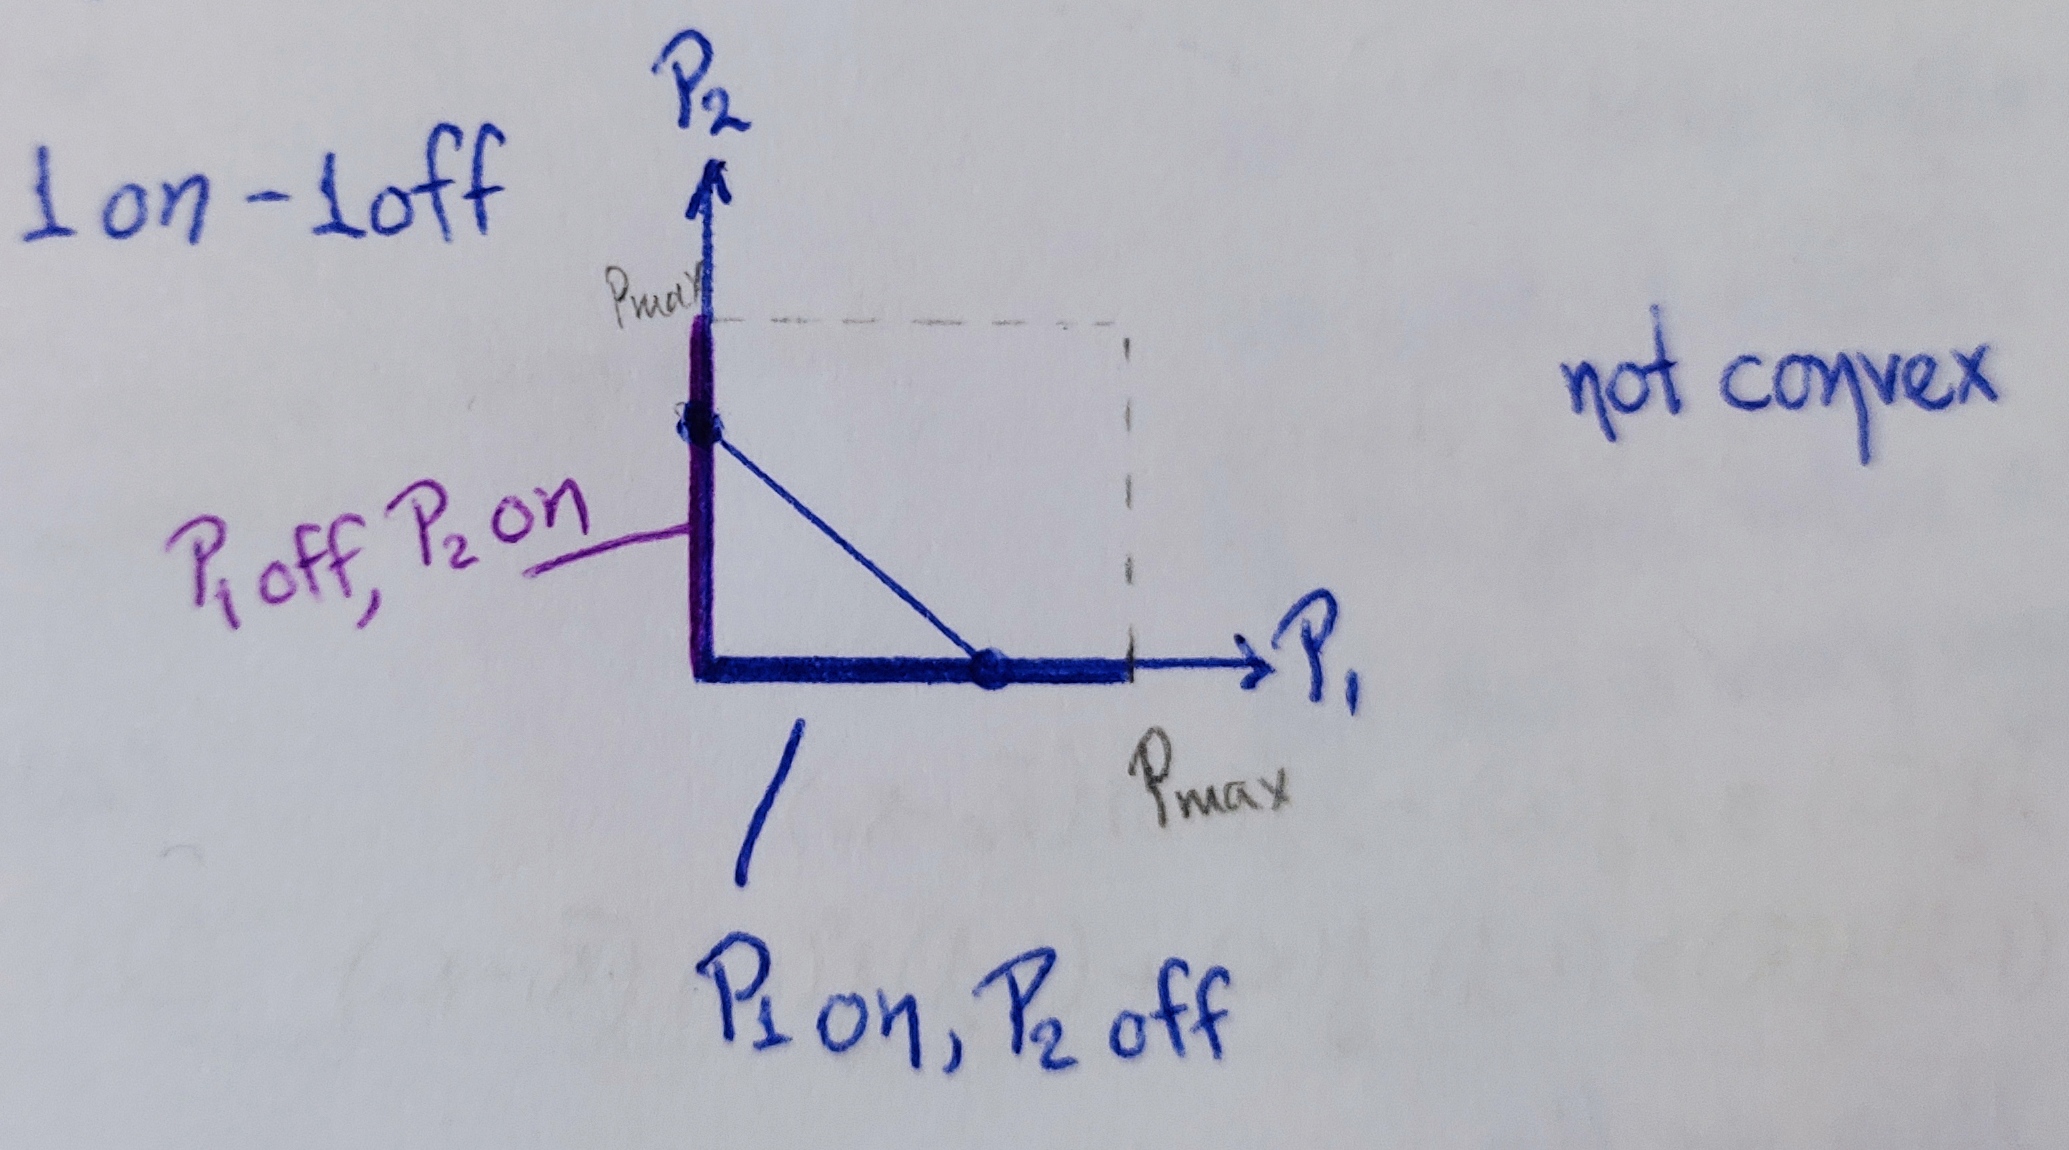 P₂
1 on - 1 off
Pmax
not convex
P₁ off, P₂ on
P₁
Pmax
P₁ on, P₂ off